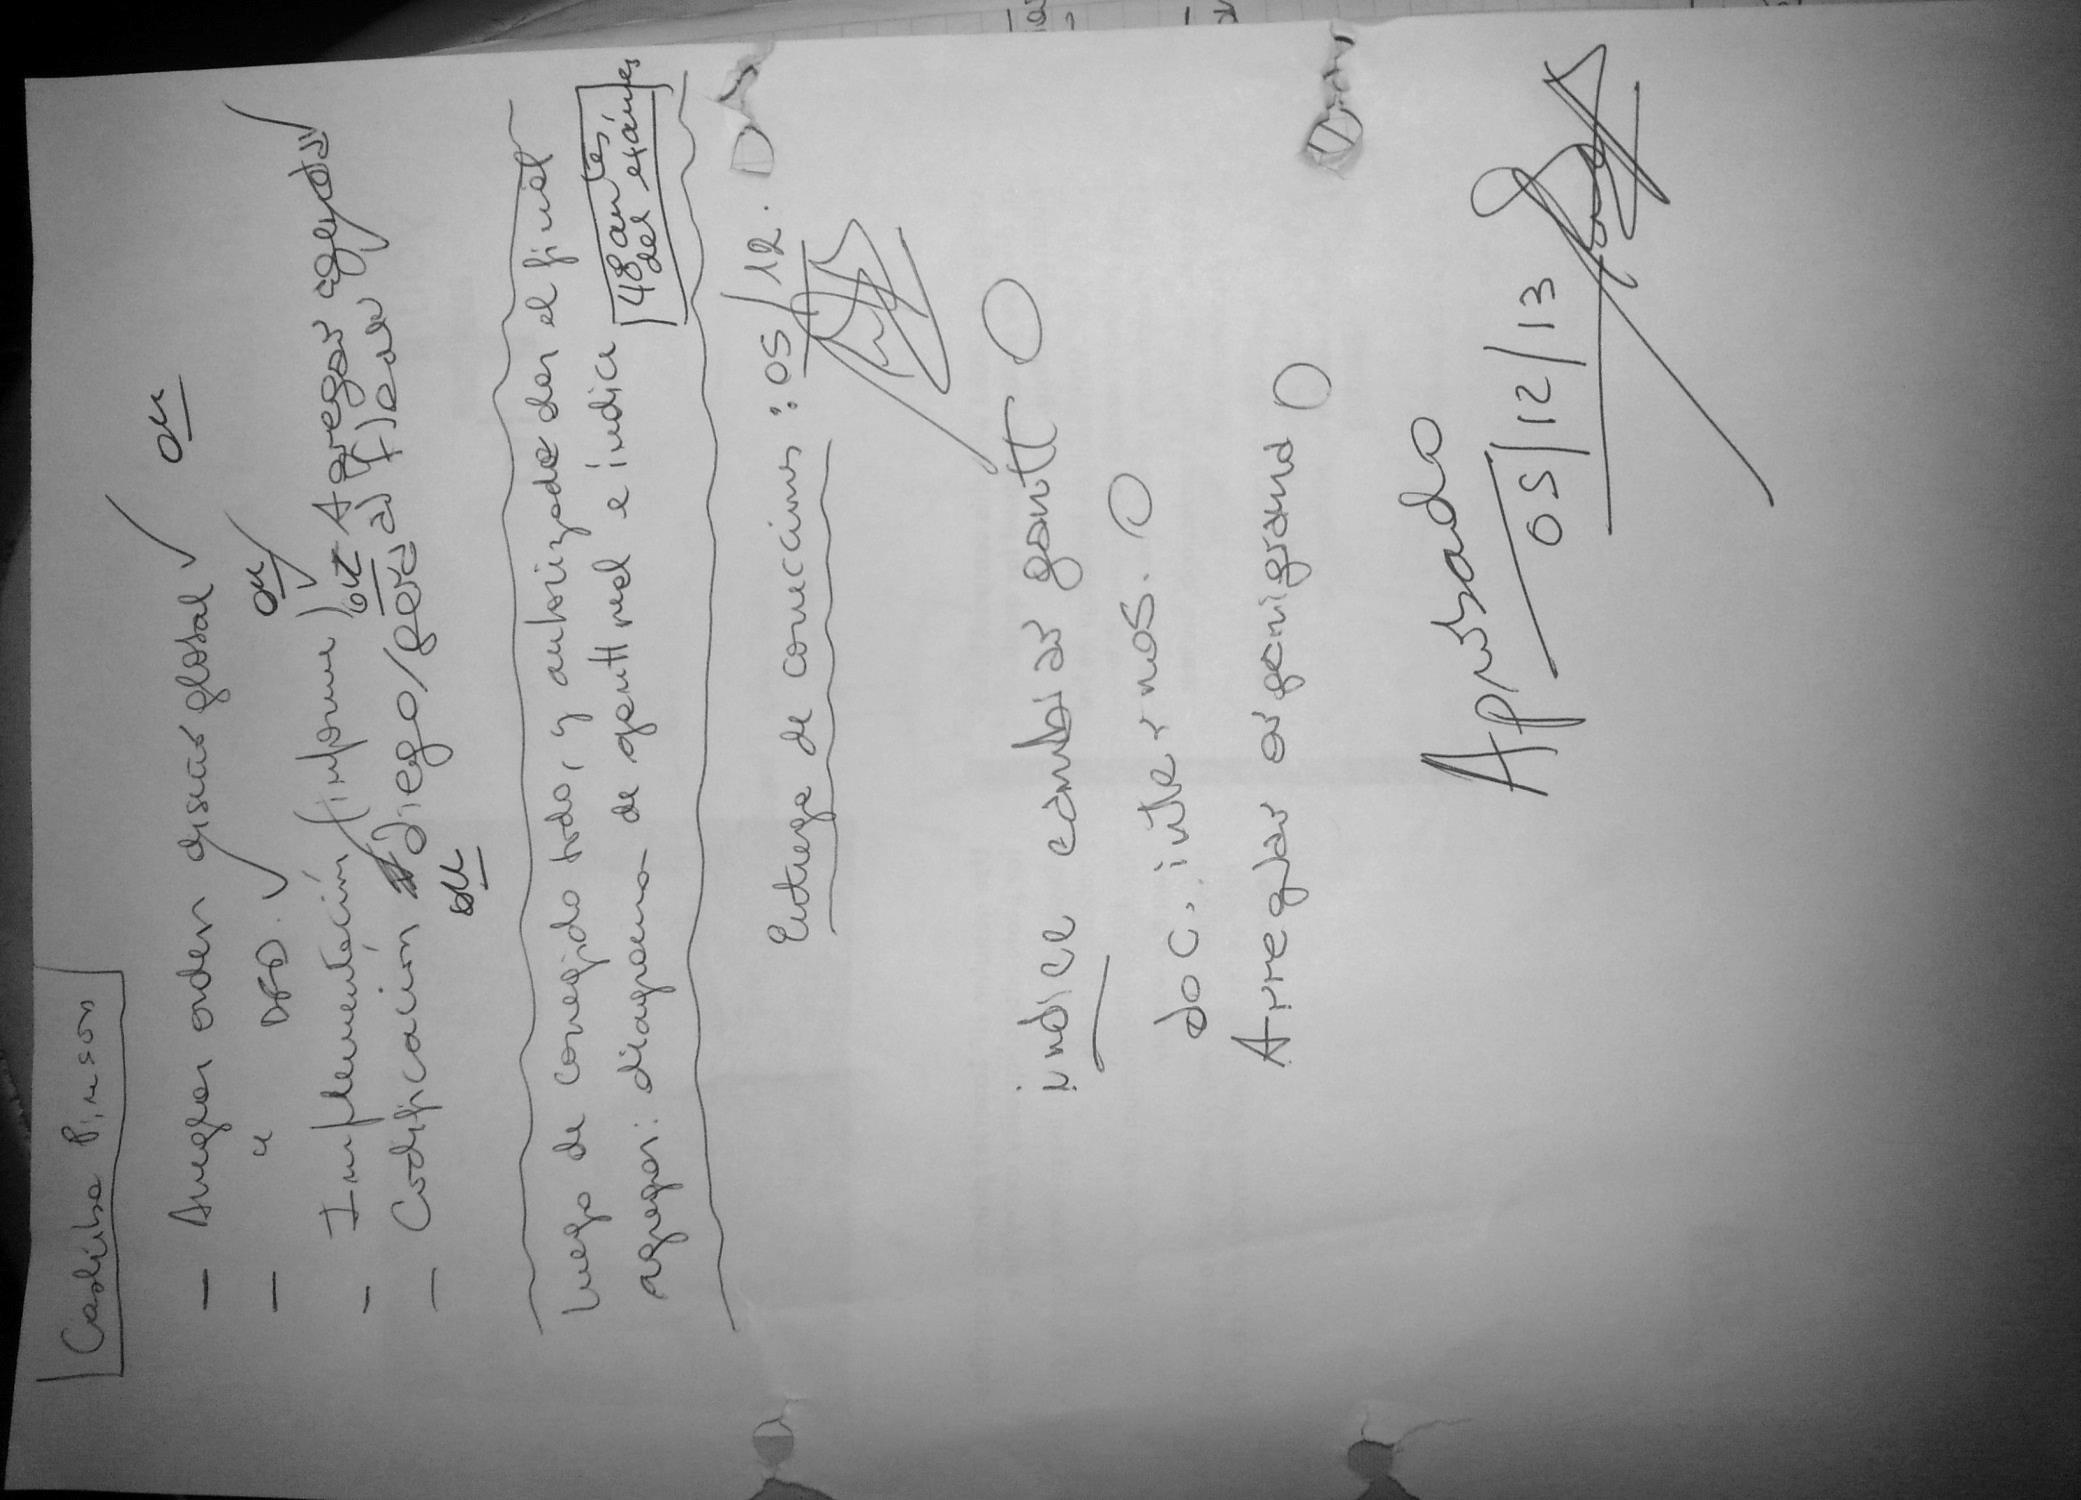 Pinson
- Arreglar orden diseño global ok
- " DFD. ok
- Implementación (informe) ok Agregar
- Codificación Diego/gerar ok
Luego de corregido todo, y autorizado dar el final
agregar: diagrama de gantt real e indice 48 antes,
del exámen,
Entrega de correcciones: 05/12.
indice cambiar gantt
doc. internos.
Arreglar organigrama
Aprobado
05/12/13